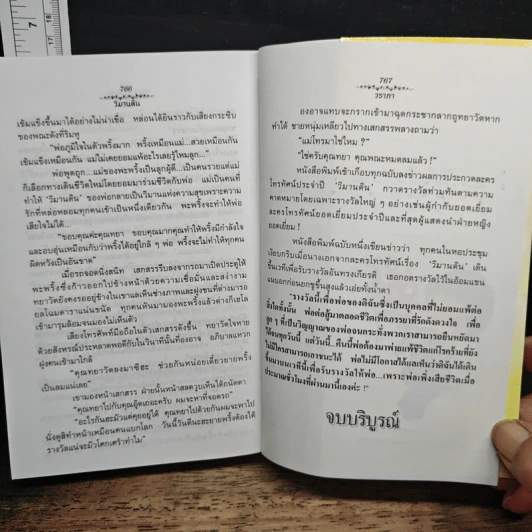 766
วิมานดิน
เข้มแข็งขึ้นมาได้อย่างไม่น่าเชื่อ หล่อนได้ยินราวกับเสียงกระซิบ
ของพณะดังที่ริมหู
"พ่อภูมิใจในตัวพริ้งมาก พริ้งเหมือนแม่...สวยเหมือนกัน
เข้มแข็งเหมือนกัน แม่ไม่เคยยอมแพ้อะไรเลยรู้ไหมลูก..."
พ่อพูดถูก...แม่ของพะพริ้งเป็นลูกผู้ดี...เป็นคนรวยแต่แม่
ก็เลือกทางเดินชีวิตใหม่โดยยอมมาร่วมชีวิตกับพ่อ แม่เป็นคนที่
ทำให้ 'วิมานดิน' ของพ่อกลายเป็นวิมานแห่งความสุขเพราะความ
รักที่หล่อหลอมทุกคนเข้าเป็นหนึ่งเดียวกัน พะพริ้งจะทำให้พ่อ
เสียใจไม่ได้...
"ขอบคุณค่ะคุณทยา ขอบคุณมากคุณทำให้พริ้งมีกำลังใจ
และอบอุ่นเหมือนกับว่าพริ้งได้อยู่ใกล้ ๆ พ่อ พริ้งจะไม่ทำให้ทุกคน
ผิดหวังเป็นอันขาด"
เมื่อรถจอดนิ่งสนิท เสกสรรรีบลงจากรถมาเปิดประตูให้
พะพริ้งซึ่งก้าวออกไปข้างหน้าด้วยความเชื่อมั่นและสง่างาม
ทยาวัตยังคงรออยู่ข้างในเขาแลเห็นช่างภาพและฝูงชนที่ต่างมารอ
ยลโฉมดาราแน่นขนัด ทุกคนหันมามองพะพริ้งแล้วต่างก็เฮโล
เข้ามารุมล้อมจนมองไม่เห็นตัว
เสียงโทรศัพท์มือถือในตัวเสกสรรดังขึ้น ทยาวัตใจหาย
ด้วยสังหรณ์ประหลาดพอดีกับในวินาทีนั้นที่องอาจ อภิบาลแหวก
ฝูงคนเข้ามาใกล้
"คุณทยาวัตลงมาซิฮะ ช่วยกันหน่อยเดี๋ยวยายพริ้ง
เป็นลมแน่เลย"
เขามองหน้าเสกสรร ฝ่ายนั้นหน้าสลดวูบเห็นได้ถนัดตา
"คุณทยาไปกับคุณอู๊ดเถอะครับ ผมจะหาที่จอดรถ"
"อะไรกันฮะมัวแต่คุยอยู่ได้ คุณทยาไปด้วยกันผมจะพาไป
นั่งดูสิทำหน้าเหมือนคนแบกโลก วันนี้วันดีนะฮะยายพริ้งต้องได้
รางวัลแน่จะมัวโศกเศร้าทำไม"
767
วราภา
องอาจแทบจะกรากเข้ามาฉุดกระชากลากถูทยาวัตหาก
ทำได้ ชายหนุ่มเหลียวไปทางเสกสรรพลางถามว่า
"แม่โทรมาใช่ไหม?"
"ใช่ครับคุณทยา คุณพณะหมดลมแล้ว!"
หนังสือพิมพ์เช้าเกือบทุกฉบับลงข่าวผลการประกวดละคร
โทรทัศน์ประจำปี 'วิมานดิน' กวาดรางวัลท่วมท้นตามความ
คาดหมายโดยเฉพาะรางวัลใหญ่ ๆ อย่างเช่นผู้กำกับยอดเยี่ยม
ละครโทรทัศน์ยอดเยี่ยมประจำปีและที่สุดผู้แสดงนำฝ่ายหญิง
ยอดเยี่ยม!
หนังสือพิมพ์ฉบับหนึ่งเขียนข่าวว่า ทุกคนในหอประชุม
เงียบกริบเมื่อนางเอกจากละครโทรทัศน์เรื่อง 'วิมานดิน' เดิน
ขึ้นเวทีเพื่อรับรางวัลอันทรงเกียรติ เธอกอดรางวัลไว้ในอ้อมแขน
จนบอกก่อนยกชูขึ้นสูงแล้วเอ่ยทั้งน้ำตา
"รางวัลนี้เพื่อพ่อของดิฉันซึ่งเป็นบุคคลที่ไม่ยอมแพ้ต่อ
สิ่งใดทั้งนั้น พ่อต่อสู้มาตลอดชีวิตเพื่อภรรยาที่รักดังดวงใจ เพื่อ
ลูก ๆ ที่เป็นวิญญาณของพ่อจนกระทั่งพวกเราสามารถยืนหยัดมา
ได้จนทุกวันนี้ แต่วันนี้...คืนนี้พ่อต้องมาพ่ายแพ้ชีวิตแก่โรคร้ายที่ยัง
ไม่มีใครสามารถเอาชนะได้ พ่อไม่มีโอกาสได้แลเห็นว่าดิฉันได้เดิน
ขึ้นมาบนเวทีนี้เพื่อรับรางวัลให้พ่อ...เพราะพ่อเพิ่งเสียชีวิตเมื่อ
ประมาณชั่วโมงที่ผ่านมานี้เองค่ะ!"
จบบริบูรณ์